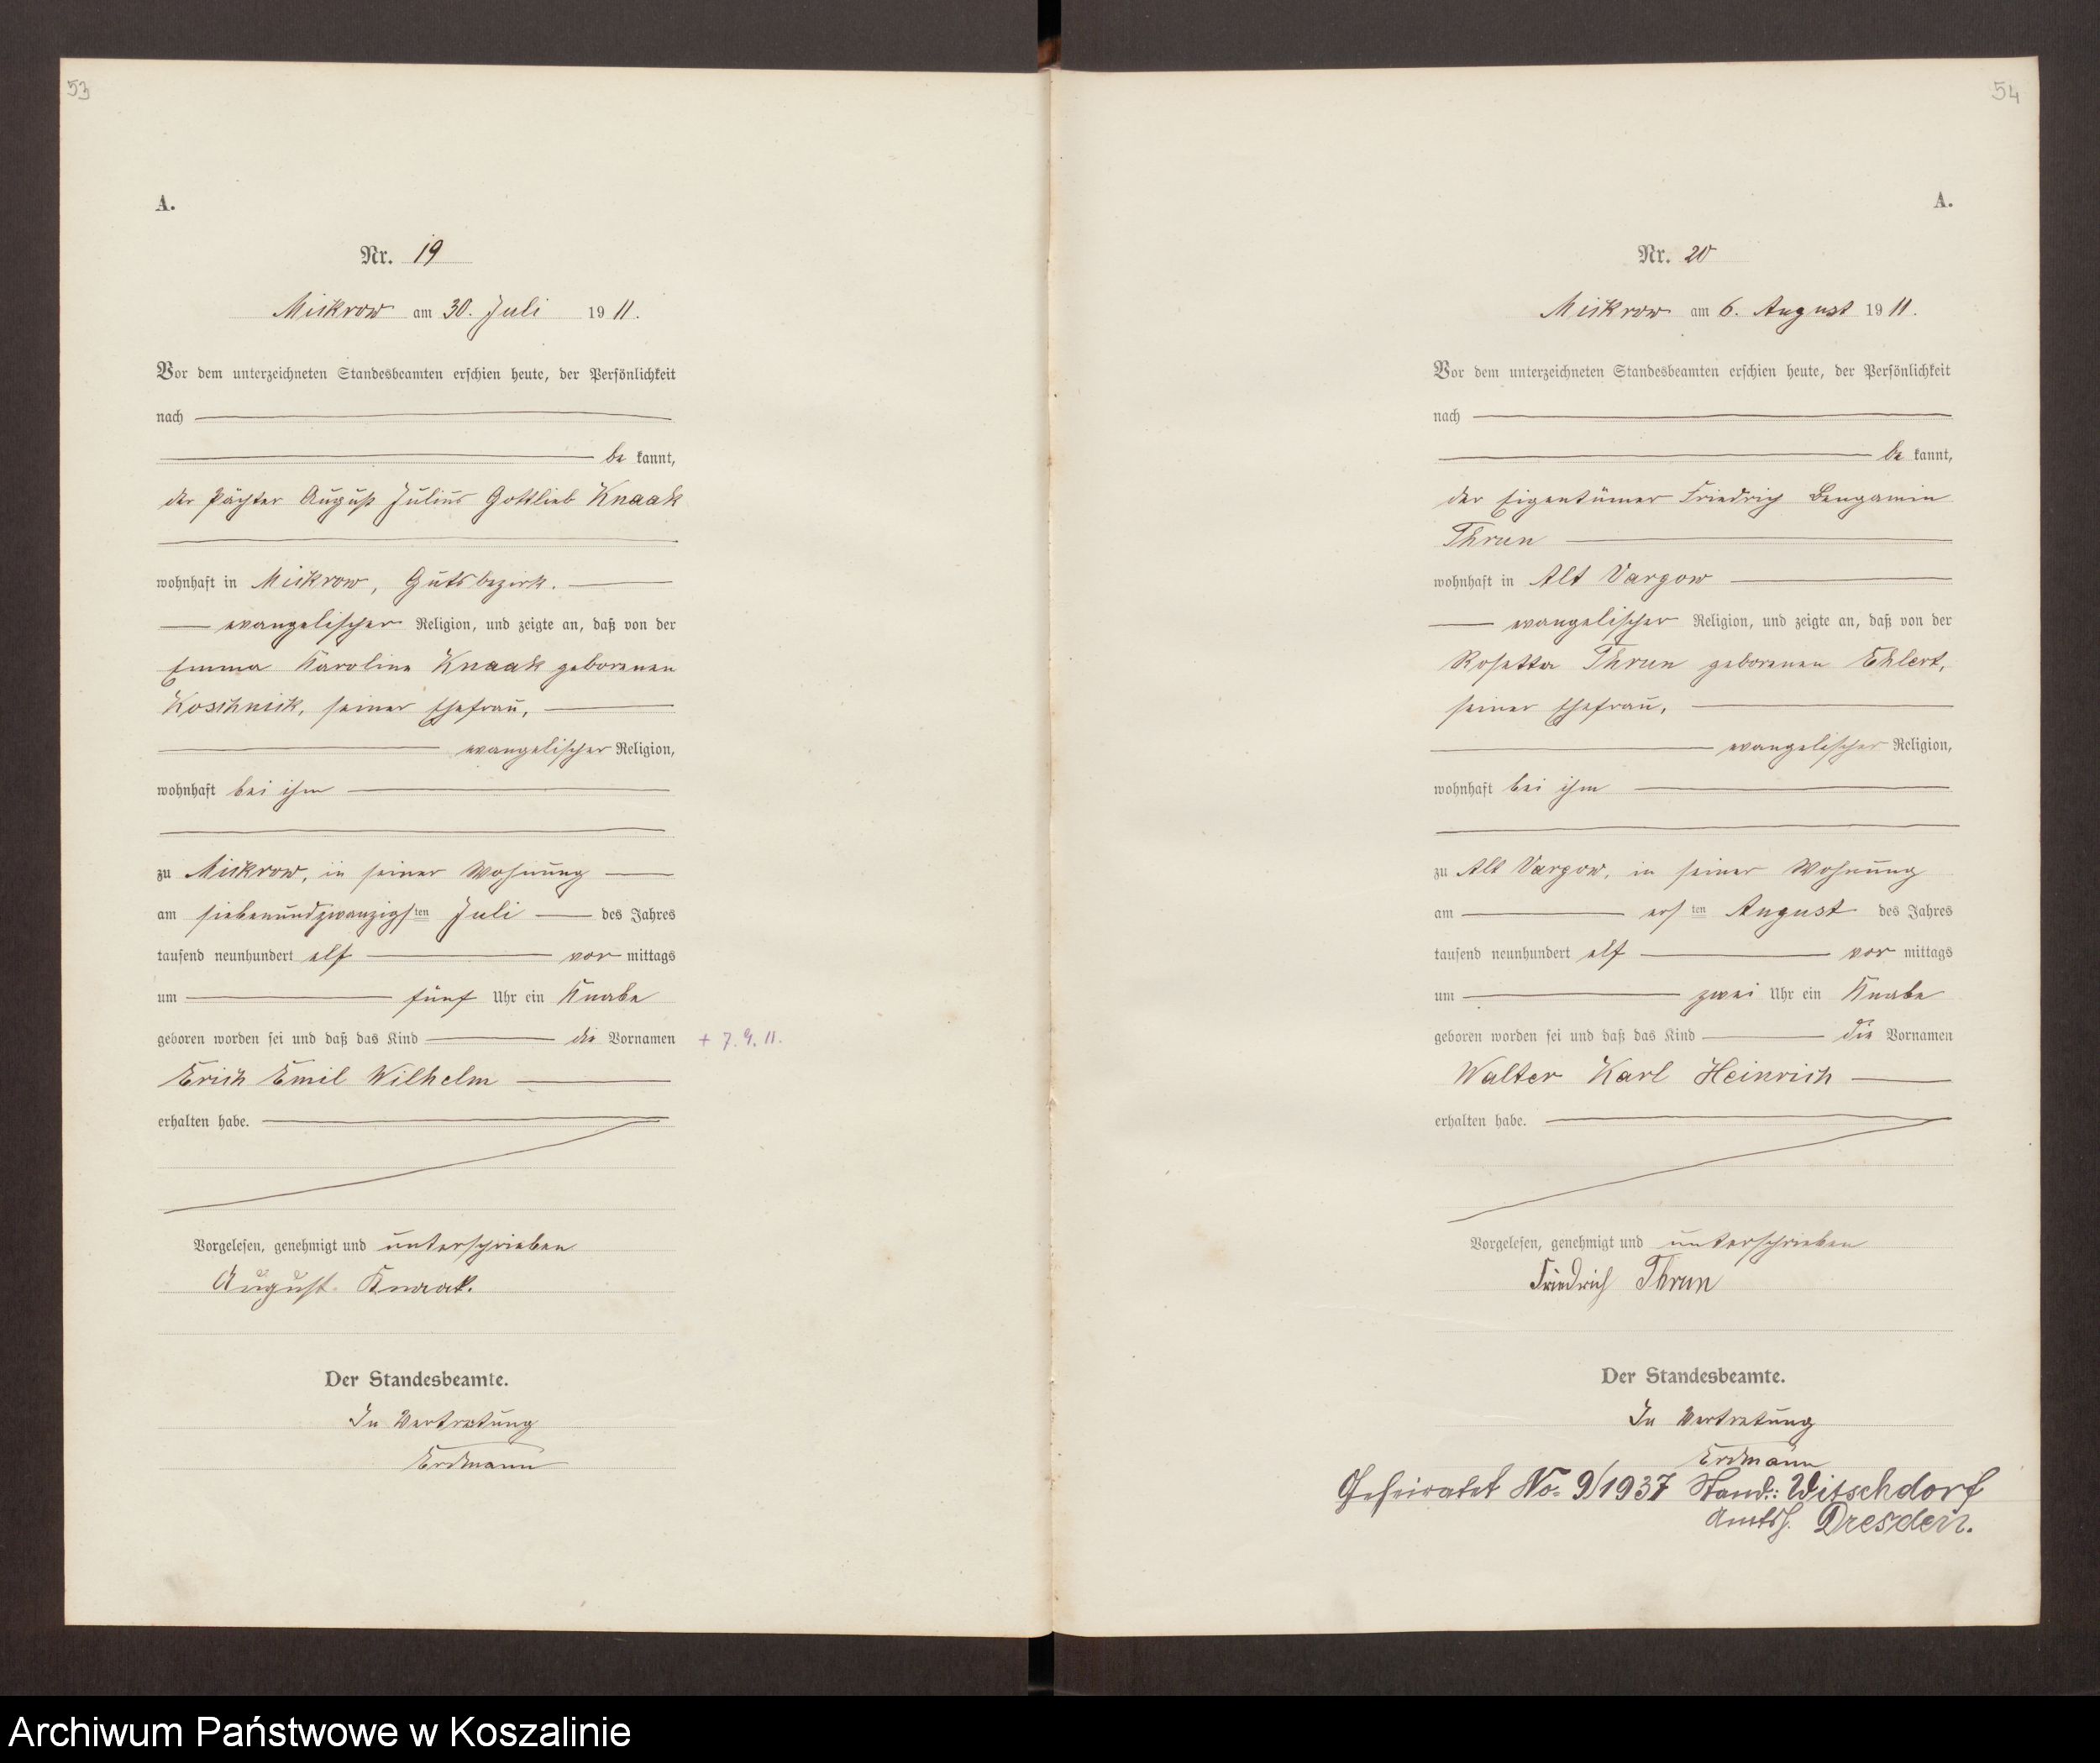 53
A.
Nr. 19
Mickrow am 30. Juli 1911.
Vor dem unterzeichneten Standesbeamten erschien heute, der Persönlichkeit
nach
be kannt,
der Pächter August Julius Gottlieb Knaak
wohnhaft in Mickrow, Gutsbezirk.
evangelischer Religion, und zeigte an, daß von der
Emma Karoline Knaak geborenen
Koschnick, seiner Ehefrau,
evangelischer Religion,
wohnhaft bei ihm
zu Mickrow, in seiner Wohnung
am siebenundzwanzigsten Juli des Jahres
tausend neunhundert elf vor mittags
um fünf Uhr ein Knabe
geboren worden sei und daß das Kind die Vornamen + 7.9.11.
Erich Emil Wilhelm
erhalten habe.
Vorgelesen, genehmigt und unterschrieben
August Knaak.
Der Standesbeamte.
In Vertretung
Erdmann
54
A.
Nr. 20
Mickrow am 6. August 1911.
Vor dem unterzeichneten Standesbeamten erschien heute, der Persönlichkeit
nach
be kannt,
der Eigentümer Friedrich Bengamin
Thrun
wohnhaft in Alt Vargow
evangelischer Religion, und zeigte an, daß von der
Rosetta Thrun geborenen Ehlert,
seiner Ehefrau,
evangelischer Religion,
wohnhaft bei ihm
zu Alt Vargow, in seiner Wohnung
am ersten August des Jahres
tausend neunhundert elf vor mittags
um zwei Uhr ein Knabe
geboren worden sei und daß das Kind die Vornamen
Walter Karl Heinrich
erhalten habe.
Vorgelesen, genehmigt und unterschrieben
Friedrich Thrun
Der Standesbeamte.
In Vertretung
Erdmann
Geheiratet No. 9/1937 Stand.: Witschdorf
Amtsh. Dresden.
Archiwum Państwowe w Koszalinie